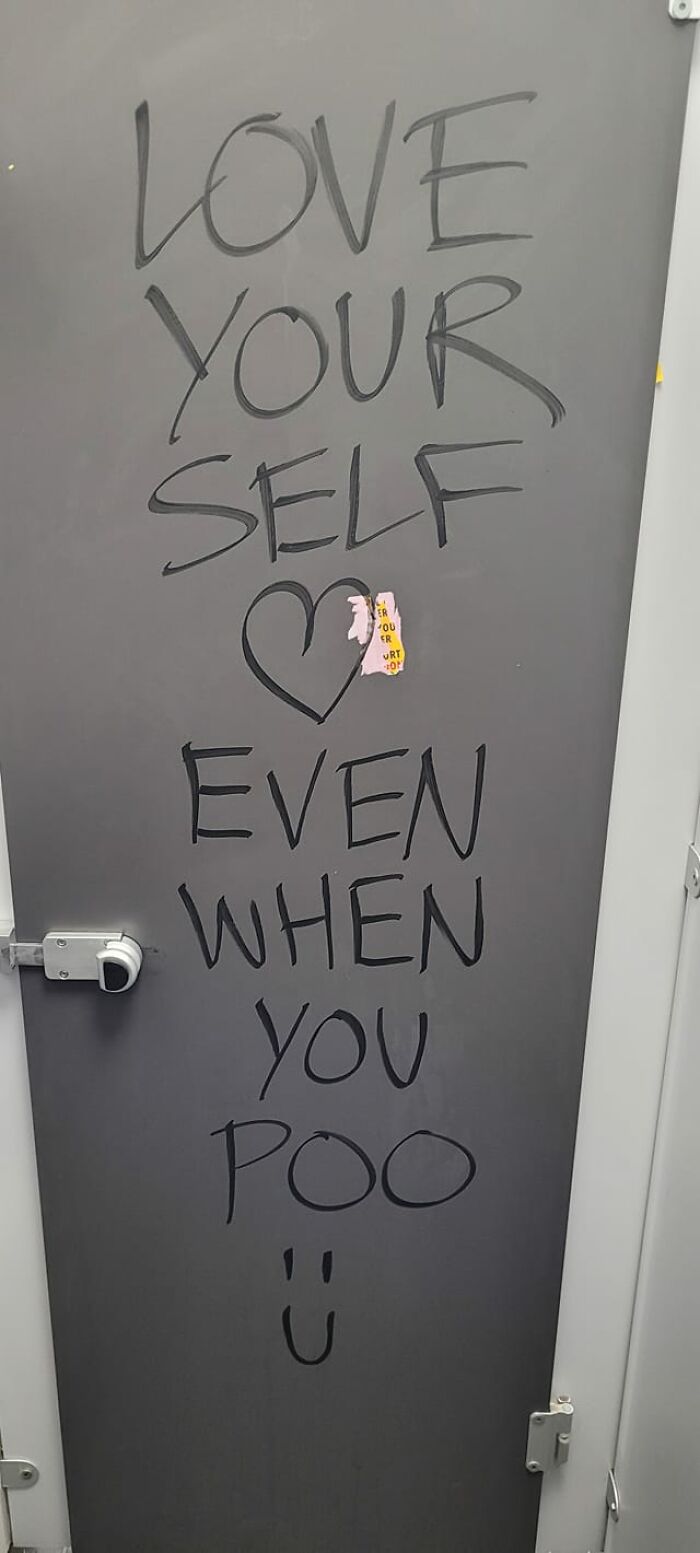 LOVE
YOUR
SELF
ER
OU
ER
EVEN
WHEN
YOU
POO